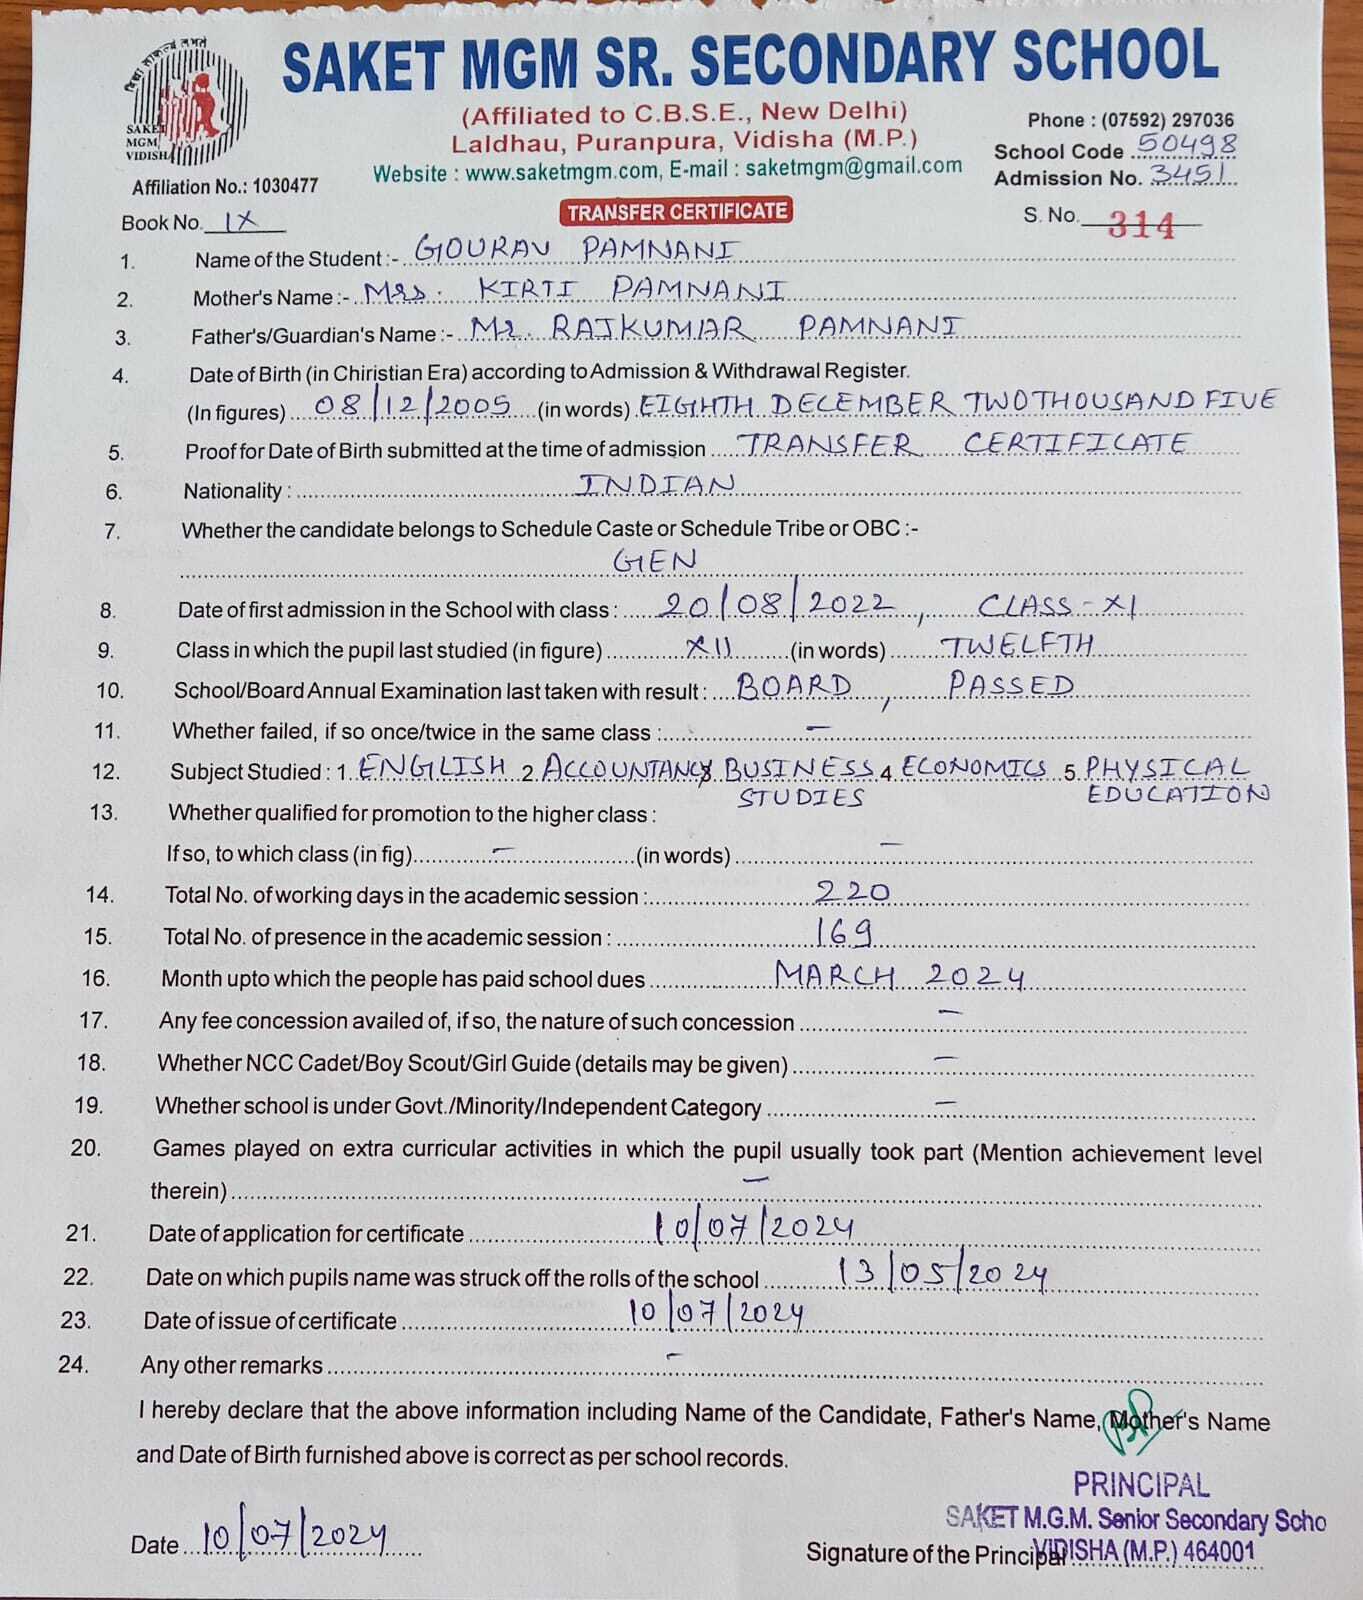 SAKET MGM SR. SECONDARY SCHOOL
(Affiliated to C.B.S.E., New Delhi)
Laldhau, Puranpura, Vidisha (M.P.)
Website : www.saketmgm.com, E-mail : saketmgm@gmail.com
SAKET
MGM
VIDISHA
Affiliation No.: 1030477
Phone : (07592) 297036
School Code 50498
Admission No. 3451
Book No. IX
TRANSFER CERTIFICATE
S. No. 314
1. Name of the Student :- GOURAV PAMNANI
2. Mother's Name :- Mrs. KIRTI PAMNANI
3. Father's/Guardian's Name :- Mr. RAJKUMAR PAMNANI
4. Date of Birth (in Chiristian Era) according to Admission & Withdrawal Register.
(In figures) 08/12/2005 (in words) EIGHTH DECEMBER TWO THOUSAND FIVE
5. Proof for Date of Birth submitted at the time of admission TRANSFER CERTIFICATE
6. Nationality : INDIAN
7. Whether the candidate belongs to Schedule Caste or Schedule Tribe or OBC :-
GEN
8. Date of first admission in the School with class : 20/08/2022, CLASS-XI
9. Class in which the pupil last studied (in figure) XII (in words) TWELFTH
10. School/Board Annual Examination last taken with result : BOARD, PASSED
11. Whether failed, if so once/twice in the same class : -
12. Subject Studied : 1 ENGLISH 2 ACCOUNTANCY 3 BUSINESS 4 ECONOMICS 5 PHYSICAL
STUDIES EDUCATION
13. Whether qualified for promotion to the higher class :
If so, to which class (in fig) - (in words) -
14. Total No. of working days in the academic session : 220
15. Total No. of presence in the academic session : 169
16. Month upto which the people has paid school dues MARCH 2024
17. Any fee concession availed of, if so, the nature of such concession -
18. Whether NCC Cadet/Boy Scout/Girl Guide (details may be given) -
19. Whether school is under Govt./Minority/Independent Category -
20. Games played on extra curricular activities in which the pupil usually took part (Mention achievement level
therein) -
21. Date of application for certificate 10/07/2024
22. Date on which pupils name was struck off the rolls of the school 13/05/2024
23. Date of issue of certificate 10/07/2024
24. Any other remarks -
I hereby declare that the above information including Name of the Candidate, Father's Name, Mother's Name
and Date of Birth furnished above is correct as per school records.
PRINCIPAL
SAKET M.G.M. Senior Secondary Scho
VIDISHA (M.P.) 464001
Date 10/07/2024
Signature of the Principal